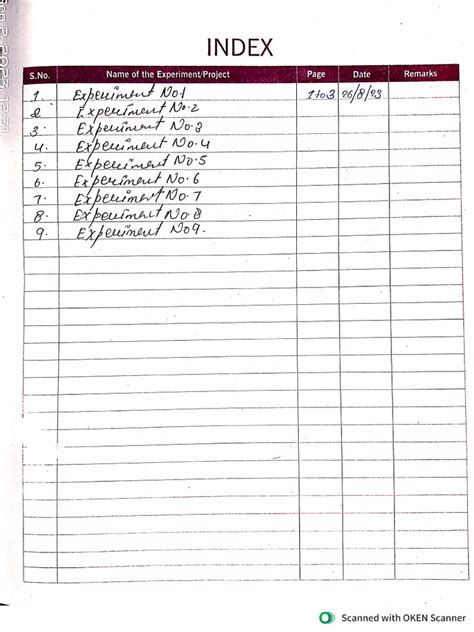 INDEX
S.No. Name of the Experiment/Project Page Date Remarks
1. Experiment No.1 1to3 26/8/23
2. Experiment No.2
3. Experiment No.3
4. Experiment No.4
5. Experiment No.5
6. Experiment No.6
7. Experiment No.7
8. Experiment No.8
9. Experiment No9.
Scanned with OKEN Scanner